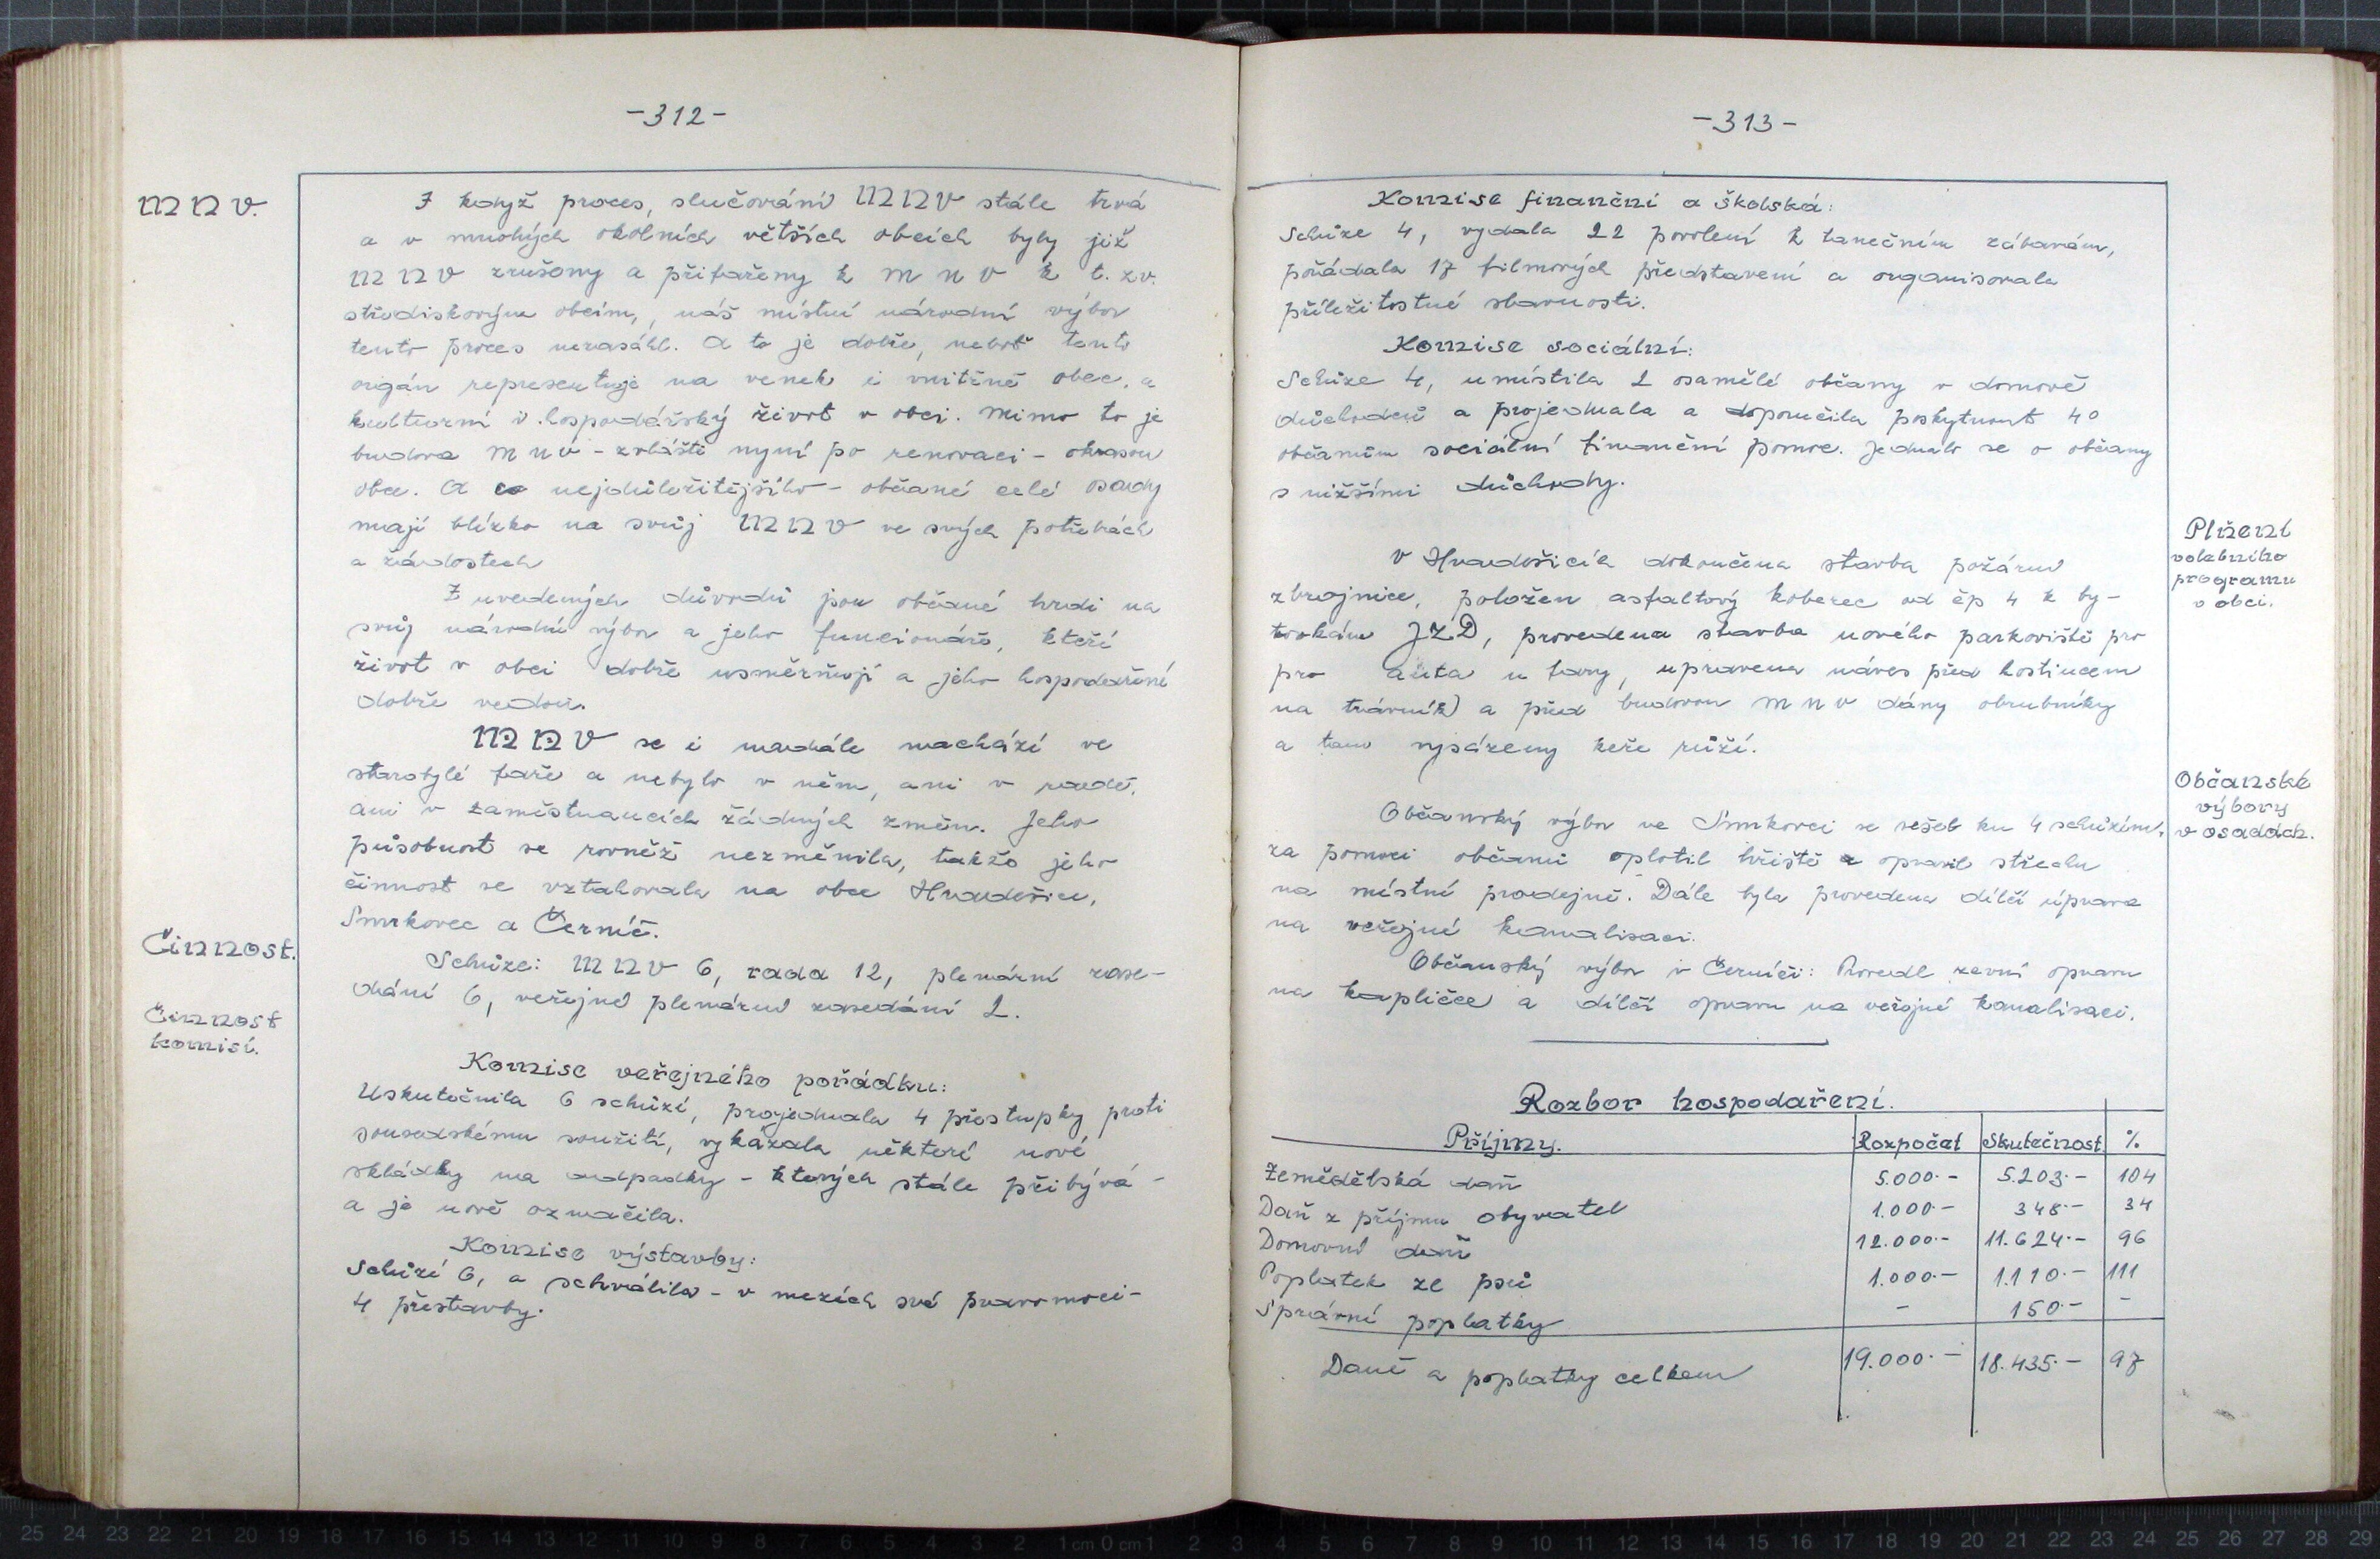 -312-
MNV.
I když proces, slučování MNV stále trvá
a v mnohých okolních větších obcích byly již
MNV zrušeny a přifařeny k MNV k t. zv.
střediskovým obcím, náš místní národní výbor
tento proces nezasáhl. A to je dobře, neboť tento
orgán representuje na venek i vnitřně obec, a
kulturní i hospodářský život v obci. Mimo to je
budova MNV - zvláště nyní po renovaci - okrasou
obce. A co nejdůležitějšího - občané celé osady
mají blízko na svůj MNV ve svých potřebách
a žádostech
Z uvedených důvodů jsou občané hrdi na
svůj národní výbor a jeho funcionáře, kteří
život v obci dobře usměrňují a jeho hospodaření
dobře vedou.
MNV se i nadále nachází ve
starobylé faře a nebylo v něm, ani v radě,
ani v zaměstnancích žádných změn. Jeho
působnost se rovněž nezměnila, takže jeho
činnost se vztahovala na obce Hvadošice,
Smrkovec a Černíč.
Činnost.
Schůze: MNV 6, rada 12, plenární zase-
dání 6, veřejné plenární zasedání 2.
Činnost
komisí.
Komise veřejného pořádku:
Uskutečnila 6 schůzí, projednala 4 přestupky proti
sousedskému soužití, vykázala některé nové
skládky na odpadky - kterých stále přibývá -
a je nově označila.
Komise výstavby:
Schůzí 6, a schválila - v mezích své pravomoci -
4 přestavby.
-313-
Komise finanční a školská:
Schůze 4, vydala 22 povolení k tanečním zábavám,
pořádala 17 filmových představení a organisovala
příležitostné slavnosti.
Komise sociální:
Schůze 4, umístila 2 osamělé občany v domově
důchodců a projednala a doporučila poskytnout 40
občanům sociální finanční pomoc. Jednalo se o občany
s nižšími důchody.
Plnění
volebního
programu
v obci.
V Hvadošicích dokončena stavba požární
zbrojnice, položen asfaltový koberec od čp 4 k by-
tovkám JZD, provedena stavba nového parkoviště pro
pro auta u fary, upravena náves před hostincem
na trávník) a před budovou MNV dány obrubníky
a tam vysázeny keře růží.
Občanské
výbory
v osadách.
Občanský výbor ve Smrkovci se sešel ku 4 schůzím,
za pomoci občanů oplotil hřiště a opravil střechu
na místní prodejně. Dále byla provedena dílčí úprava
na veřejné kanalisaci.
Občanský výbor v Černíči: Provedl zevní opravu
na kapličce a dílčí opravu na veřejné kanalisaci.
Rozbor hospodaření.
Příjmy. Rozpočet Skutečnost %
Zemědělská daň 5.000.- 5.203.- 104
Daň z příjmu obyvatel 1.000.- 348.- 34
Domovní daň 12.000.- 11.624.- 96
Poplatek ze psů 1.000.- 1.110.- 111
Správní poplatky - 150.- -
Daně a poplatky celkem 19.000.- 18.435.- 97
25 24 23 22 21 20 19 18 17 16 15 14 13 12 11 10 9 8 7 6 5 4 3 2 1 cm 0 cm 1 2 3 4 5 6 7 8 9 10 11 12 13 14 15 16 17 18 19 20 21 22 23 24 25 26 27 28 29